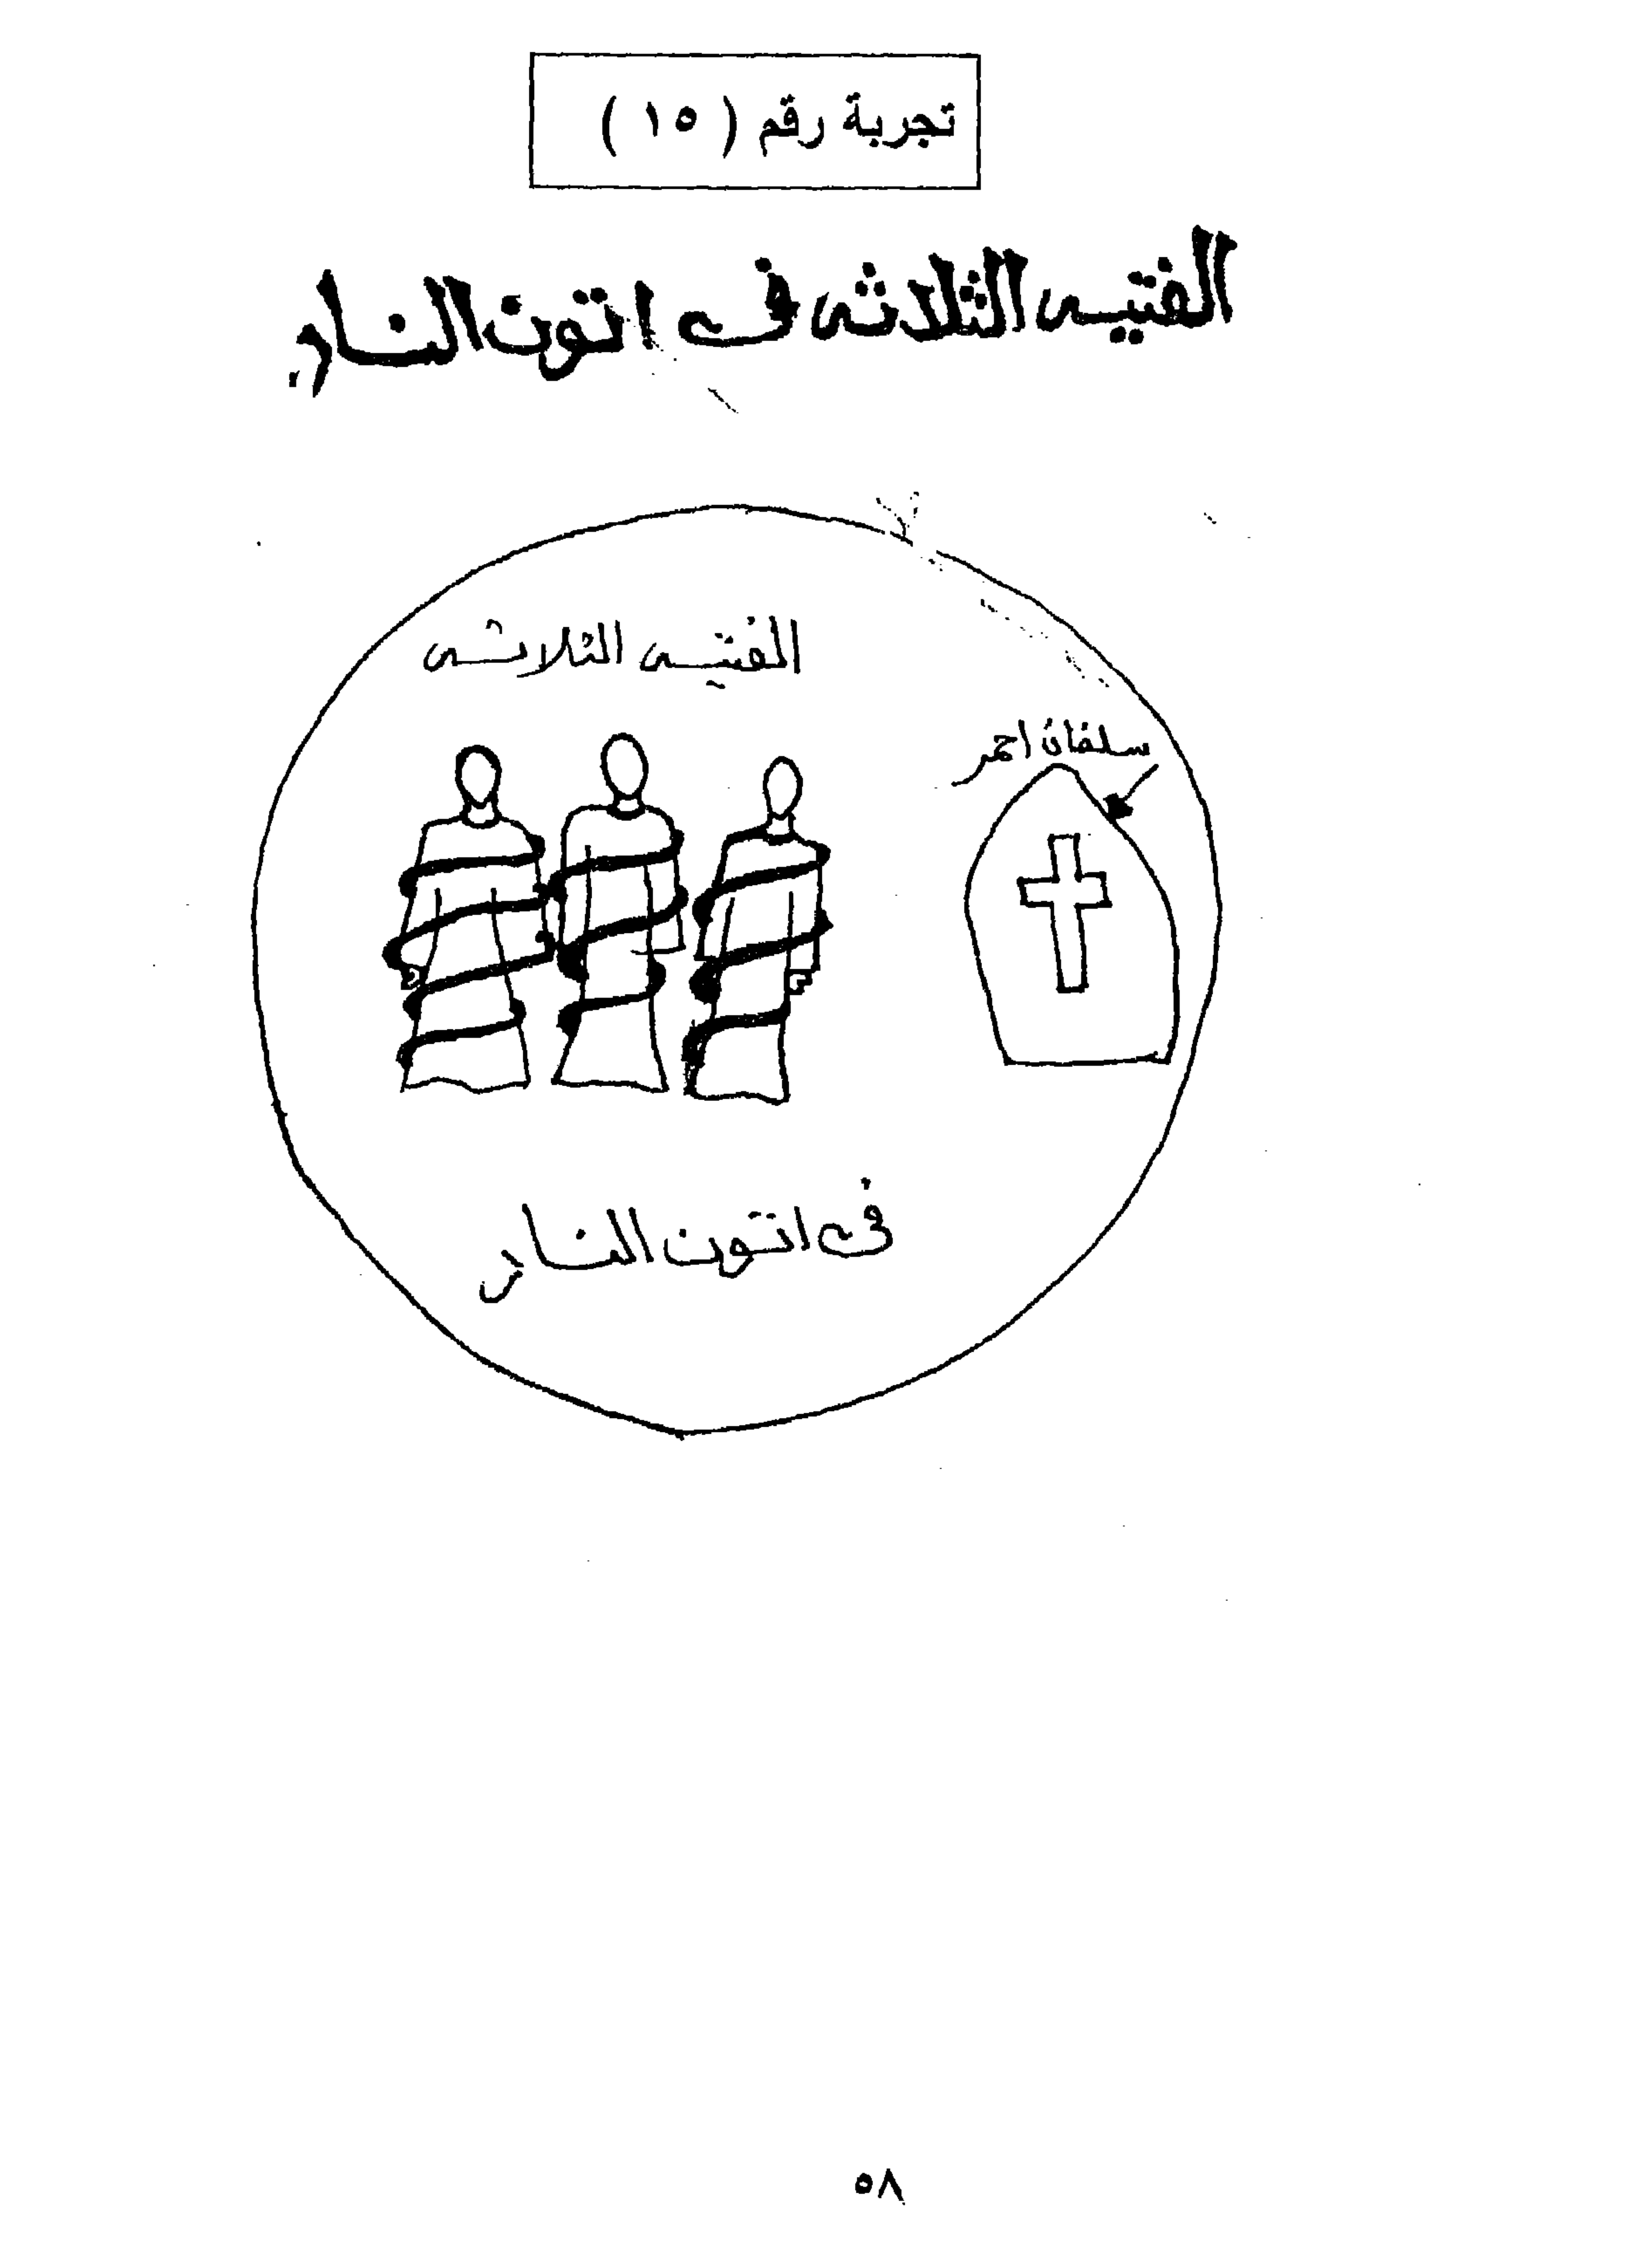 تجربة رقم ( ١٥ )
الفتيه الثلاثه فى اتون النار
الفتيه الثلاثه
سلفان احمر
فى اتون النار
٥٨